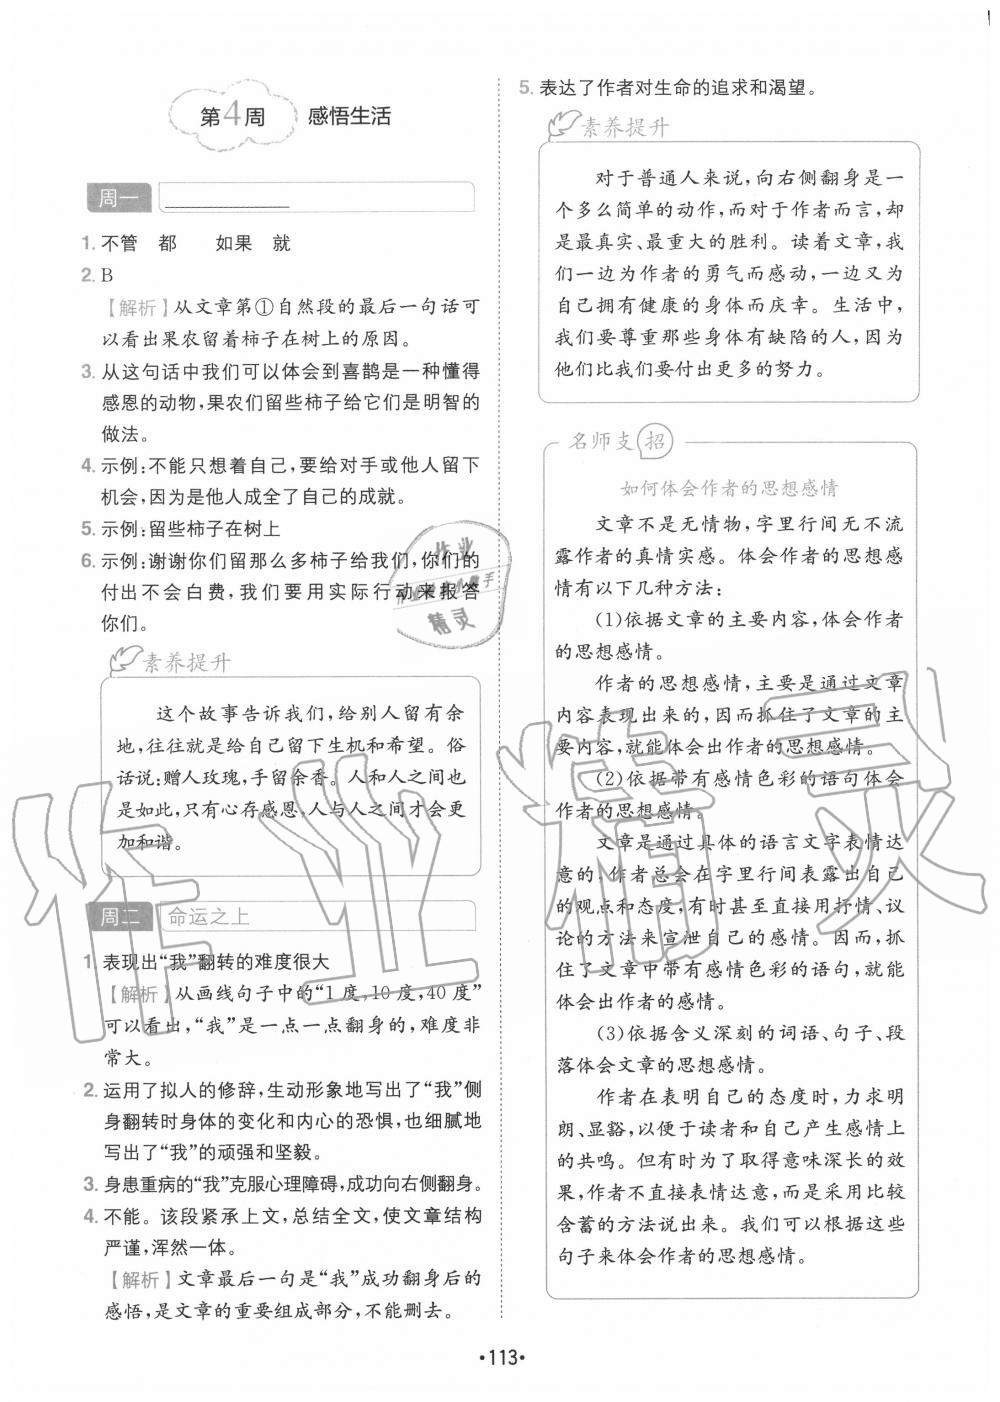 第4周 感悟生活
周一
1. 不管 都 如果 就
2. B
【解析】从文章第①自然段的最后一句话可
以看出果农留着柿子在树上的原因。
3. 从这句话中我们可以体会到喜鹊是一种懂得
感恩的动物,果农们留些柿子给它们是明智的
做法。
4. 示例:不能只想着自己,要给对手或他人留下
机会,因为是他人成全了自己的成就。
5. 示例:留些柿子在树上
6. 示例:谢谢你们留那么多柿子给我们,你们的
付出不会白费,我们要用实际行动来报答
你们。
素养提升
这个故事告诉我们,给别人留有余
地,往往就是给自己留下生机和希望。俗
话说:赠人玫瑰,手留余香。人和人之间也
是如此,只有心存感恩,人与人之间才会更
加和谐。
周二 命运之上
1. 表现出“我”翻转的难度很大
【解析】从画线句子中的“1度,10度,40度”
可以看出,“我”是一点一点翻身的,难度非
常大。
2. 运用了拟人的修辞,生动形象地写出了“我”侧
身翻转时身体的变化和内心的恐惧,也细腻地
写出了“我”的顽强和坚毅。
3. 身患重病的“我”克服心理障碍,成功向右侧翻身。
4. 不能。该段紧承上文,总结全文,使文章结构
严谨,浑然一体。
【解析】文章最后一句是“我”成功翻身后的
感悟,是文章的重要组成部分,不能删去。
5. 表达了作者对生命的追求和渴望。
素养提升
对于普通人来说,向右侧翻身是一
个多么简单的动作,而对于作者而言,却
是最真实、最重大的胜利。读着文章,我
们一边为作者的勇气而感动,一边又为
自己拥有健康的身体而庆幸。生活中,
我们要尊重那些身体有缺陷的人,因为
他们比我们要付出更多的努力。
名师支招
如何体会作者的思想感情
文章不是无情物,字里行间无不流
露作者的真情实感。体会作者的思想感
情有以下几种方法:
(1)依据文章的主要内容,体会作者
的思想感情。
作者的思想感情,主要是通过文章
内容表现出来的,因而抓住了文章的主
要内容,就能体会出作者的思想感情。
(2)依据带有感情色彩的语句体会
作者的思想感情。
文章是通过具体的语言文字表情达
意的,作者总会在字里行间表露出自己
的观点和态度,有时甚至直接用抒情、议
论的方法来宣泄自己的感情。因而,抓
住了文章中带有感情色彩的语句,就能
体会出作者的感情。
(3)依据含义深刻的词语、句子、段
落体会文章的思想感情。
作者在表明自己的态度时,力求明
朗、显豁,以便于读者和自己产生感情上
的共鸣。但有时为了取得意味深长的效
果,作者不直接表情达意,而是采用比较
含蓄的方法说出来。我们可以根据这些
句子来体会作者的思想感情。
·113·
作业精灵